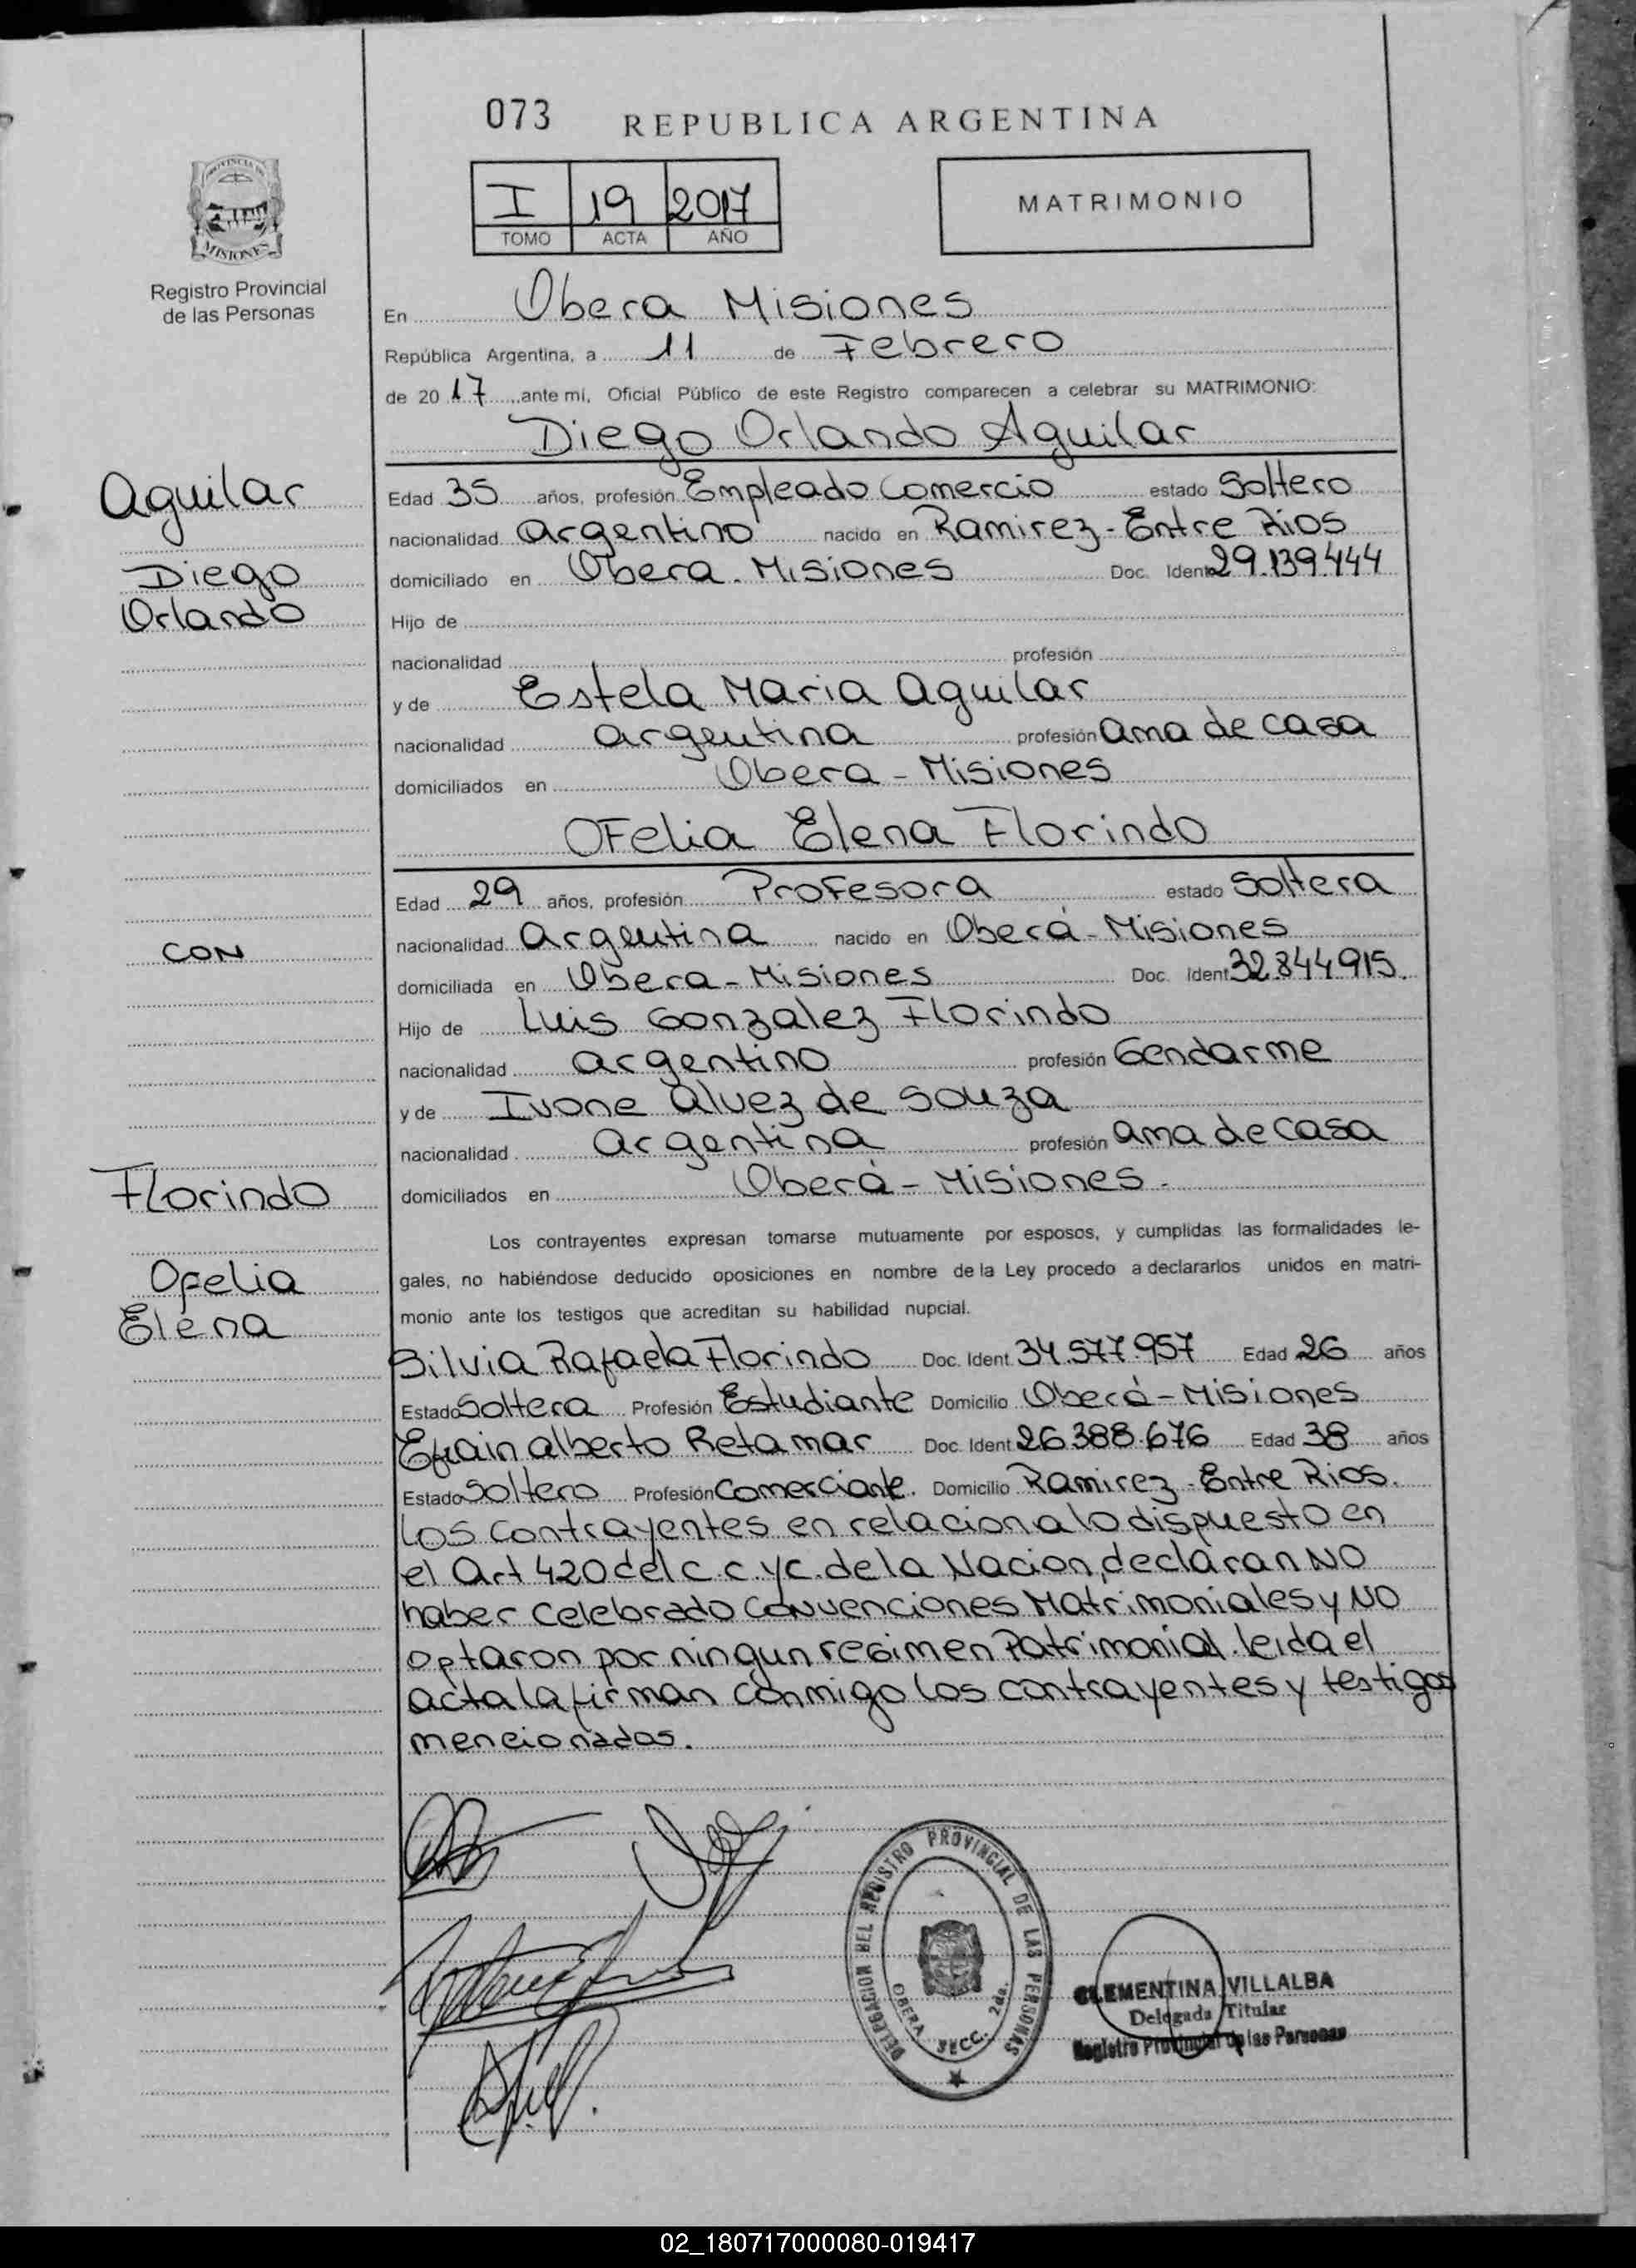 073 REPUBLICA ARGENTINA
I 19 2017
TOMO ACTA AÑO
MATRIMONIO
PROVINCIA DE
MISIONES
Registro Provincial
de las Personas
En Obera Misiones
República Argentina, a 11 de Febrero
de 2017, ante mí, Oficial Público de este Registro comparecen a celebrar su MATRIMONIO:
Diego Orlando Aguilar
Aguilar
Diego
Orlando
Edad 35 años, profesión Empleado Comercio estado Soltero
nacionalidad argentino nacido en Ramirez - Entre Rios
domiciliado en Obera. Misiones Doc. Ident 29.139.444
Hijo de
nacionalidad profesión
y de Estela Maria Aguilar
nacionalidad argentina profesión ama de casa
domiciliados en Obera - Misiones
OFelia Elena Florindo
Edad 29 años, profesión Profesora estado Soltera
CON
nacionalidad Argentina nacido en Oberá - Misiones
domiciliada en Obera - Misiones Doc. Ident 32.844.915.
Hijo de Luis Gonzalez Florindo
nacionalidad argentino profesión Gendarme
y de Ivone alvez de Souza
nacionalidad argentina profesión ama de casa
domiciliados en Oberá - Misiones -
Florindo
Ofelia
Elena
Los contrayentes expresan tomarse mutuamente por esposos, y cumplidas las formalidades le-
gales, no habiéndose deducido oposiciones en nombre de la Ley procedo a declararlos unidos en matri-
monio ante los testigos que acreditan su habilidad nupcial.
Silvia Rafaela Florindo Doc. Ident 34.577.957 Edad 26 años
Estado Soltera Profesión Estudiante Domicilio Oberá - Misiones
Efrain alberto Retamar Doc. Ident 26.388.676 Edad 38 años
Estado Soltero Profesión Comerciante. Domicilio Ramirez - Entre Rios.
Los contrayentes en relacion a lo dispuesto en
el Art 420 del c.c. yc. de la Nacion, declaran NO
haber celebrado convenciones Matrimoniales y NO
optaron por ningun regimen Patrimonial. leida el
acta la firman conmigo los contrayentes y testigos
mencionados.
DELEGACION DEL REGISTRO PROVINCIAL DE LAS PERSONAS
OBERA SECC. 2da.
CLEMENTINA VILLALBA
Delegada Titular
Registro Provincial de las Personas
02_180717000080-019417